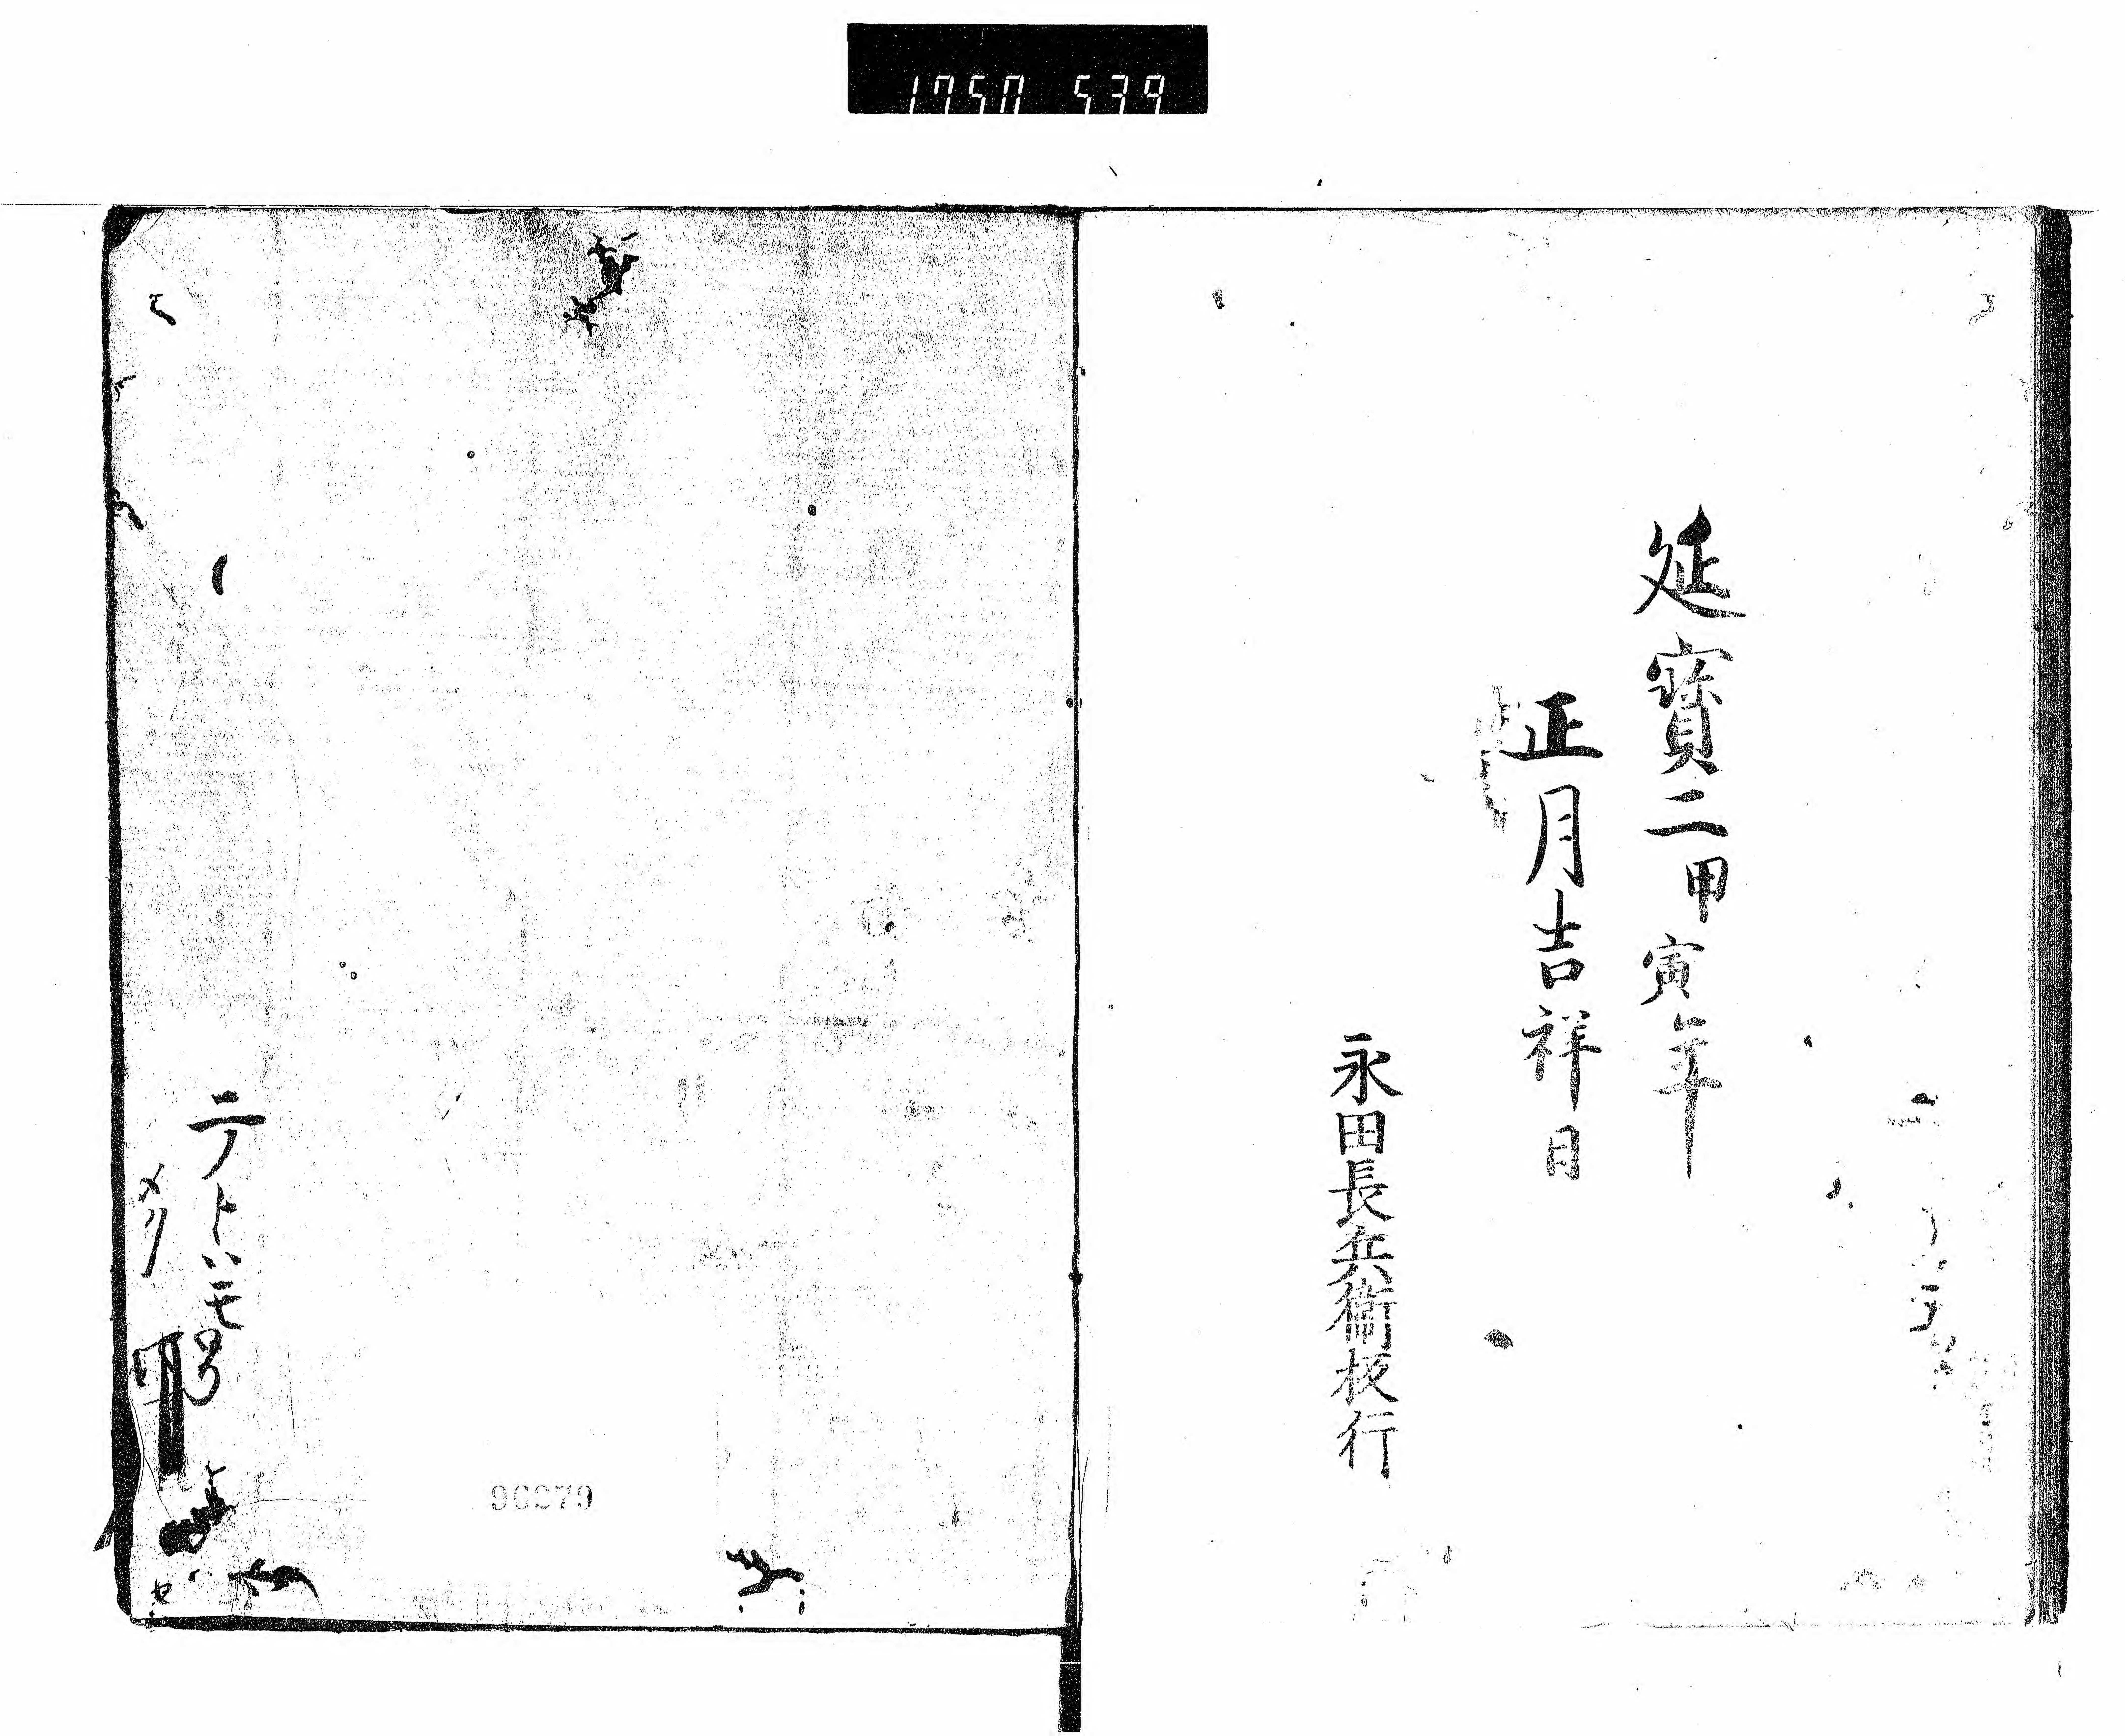 1750 539
延寶二甲寅年
正月吉祥日
永田長兵衛板行
96279